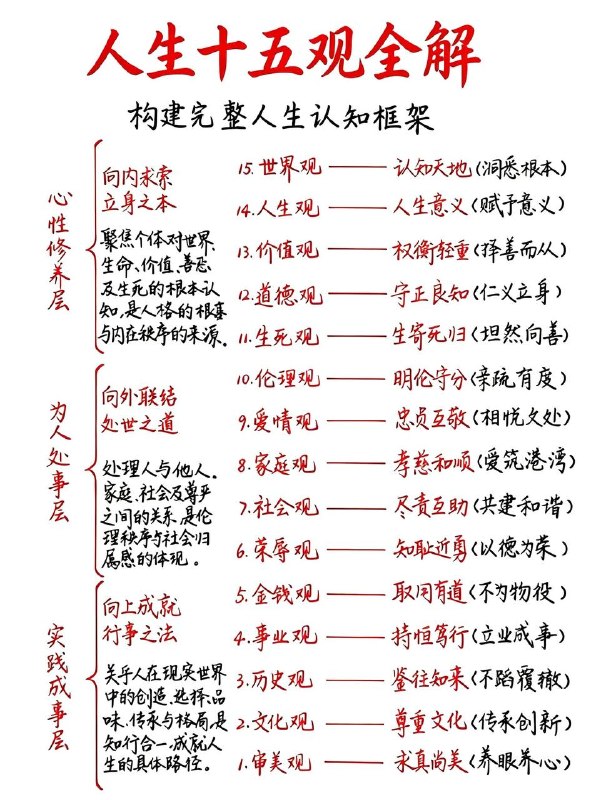 人生十五观全解
构建完整人生认知框架
心性修养层
向内求索
立身之本
聚焦个体对世界、
生命、价值、善恶
及生死的根本认
知,是人格的根基
与内在秩序的来源。
15.世界观——认知天地(洞悉根本)
14.人生观——人生意义(赋予意义)
13.价值观——权衡轻重(择善而从)
12.道德观——守正良知(仁义立身)
11.生死观——生寄死归(坦然向善)
为人处事层
向外联结
处世之道
处理人与他人、
家庭、社会及尊严
之间的关系,是伦
理秩序与社会归
属感的体现。
10.伦理观——明伦守分(亲疏有度)
9.爱情观——忠贞互敬(相悦久处)
8.家庭观——孝慈和顺(爱筑港湾)
7.社会观——尽责互助(共建和谐)
6.荣辱观——知耻近勇(以德为荣)
实践成事层
向上成就
行事之法
关乎人在现实世界
中的创造、选择、品
味、传承与格局,是
知行合一、成就人
生的具体路径。
5.金钱观——取用有道(不为物役)
4.事业观——持恒笃行(立业成事)
3.历史观——鉴往知来(不蹈覆辙)
2.文化观——尊重文化(传承创新)
1.审美观——求真尚美(养眼养心)